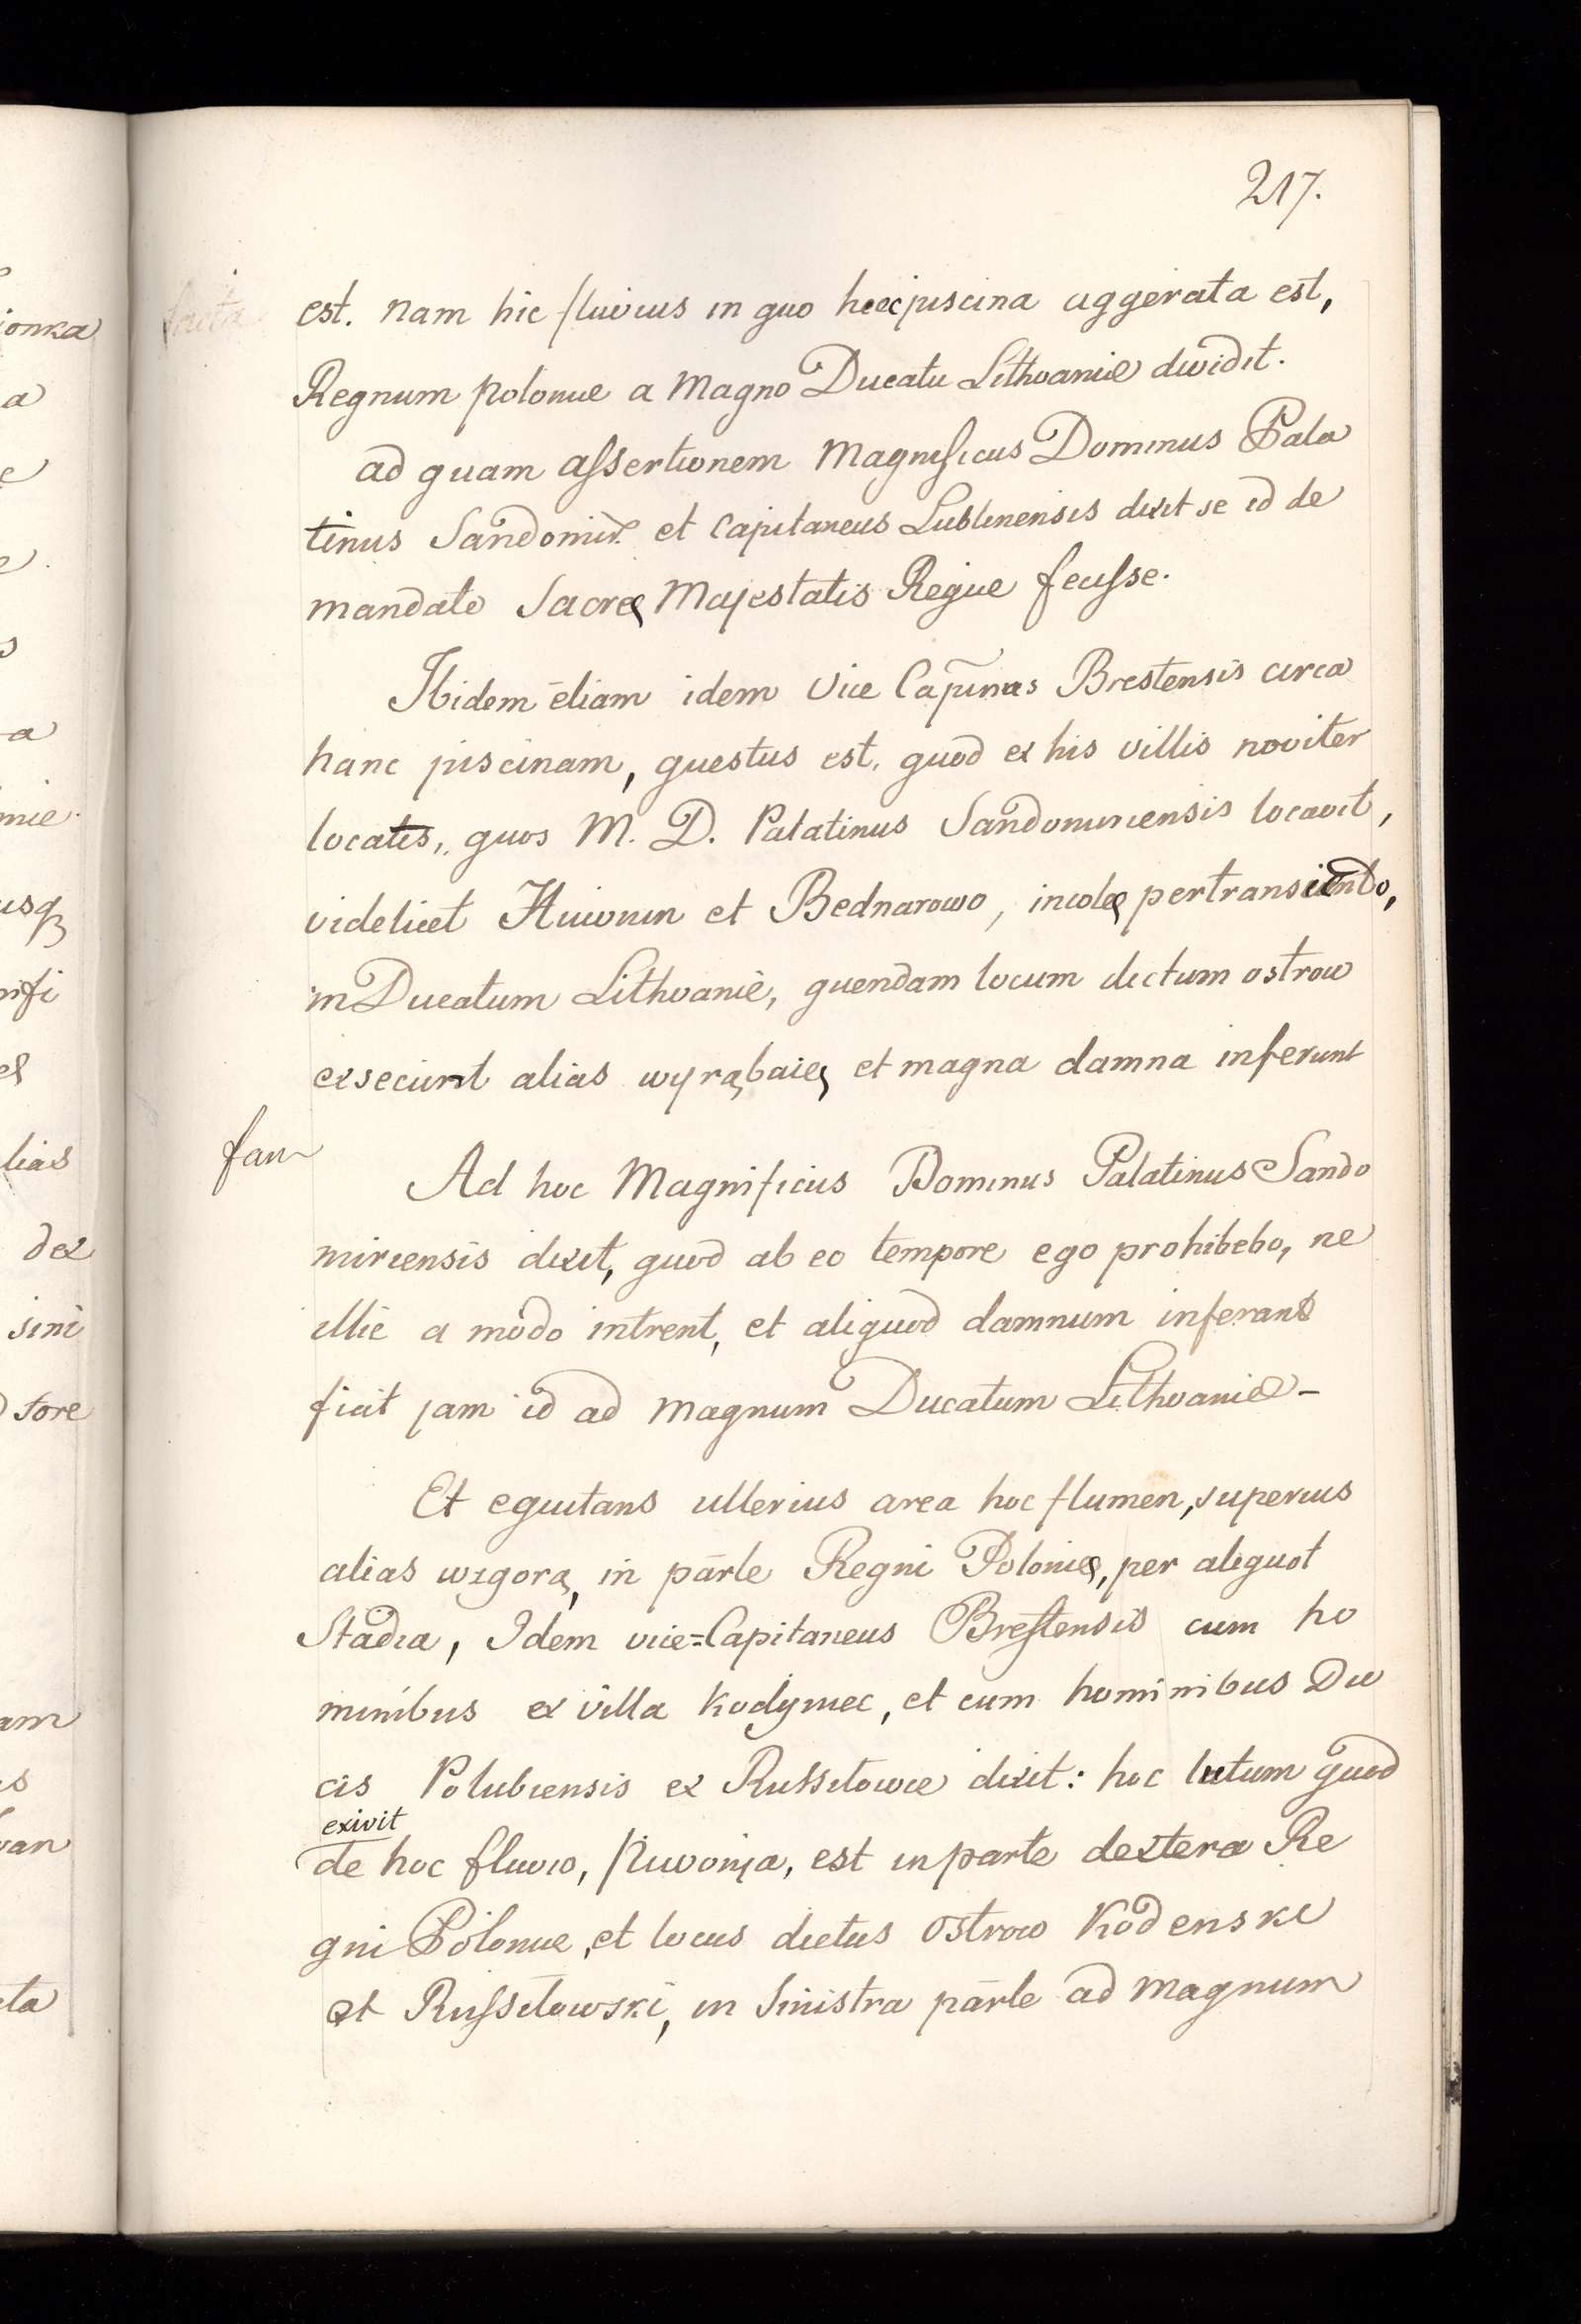 217.
est. nam hic fluvius in quo hæc piscina aggerata est,
Regnum poloniæ a Magno Ducatu Lithvaniæ dividit.
ad quam assertionem Magnificus Dominus Pala
tinus Sandomir. et Capitaneus Lublinensis dixit se id de
mandato Sacre Majestatis Regiæ fecisse.
Ibidem etiam idem Vice Brestensis circa
hanc piscinam, questus est, quod ex his villis noviter
locatis, quos M. D. Palatinus Sandomiriensis locavit,
videlicet et Bednarowo, incolę pertranseundo,
in Ducatum Lithvanie, quendam locum dictum ostrow
exsecunt alias wyrąbaię et magna damna inferunt
fam
Ad hoc Magnificus Dominus Palatinus Sando
miriensis dixit, quod ab eo tempore ego prohibebo, ne
illic a modo intrent, et aliquod damnum inferant
ficit jam id ad Magnum Ducatum Lithvaniæ –
Et equitans ulterius circa hoc flumen, superius
alias wzgorą, in parte Regni Polonię, per aliquot
Stadia, Idem vice=Capitaneus Brestensis cum ho
minibus ex villa Kodymec, et cum hominibus Du
cis Polubiensis ex Russilowce dixit: hoc lutum quod
exivit
de hoc fluvio, est in parte dextera Re
gni Poloniæ, et locus dictus Ostrow Kodenski
et Russilowski, in Sinistra parte ad Magnum
ionka
a
e
s
a
nie
usq
nifi
lias
dex
sini
tore
am
is
van
cta